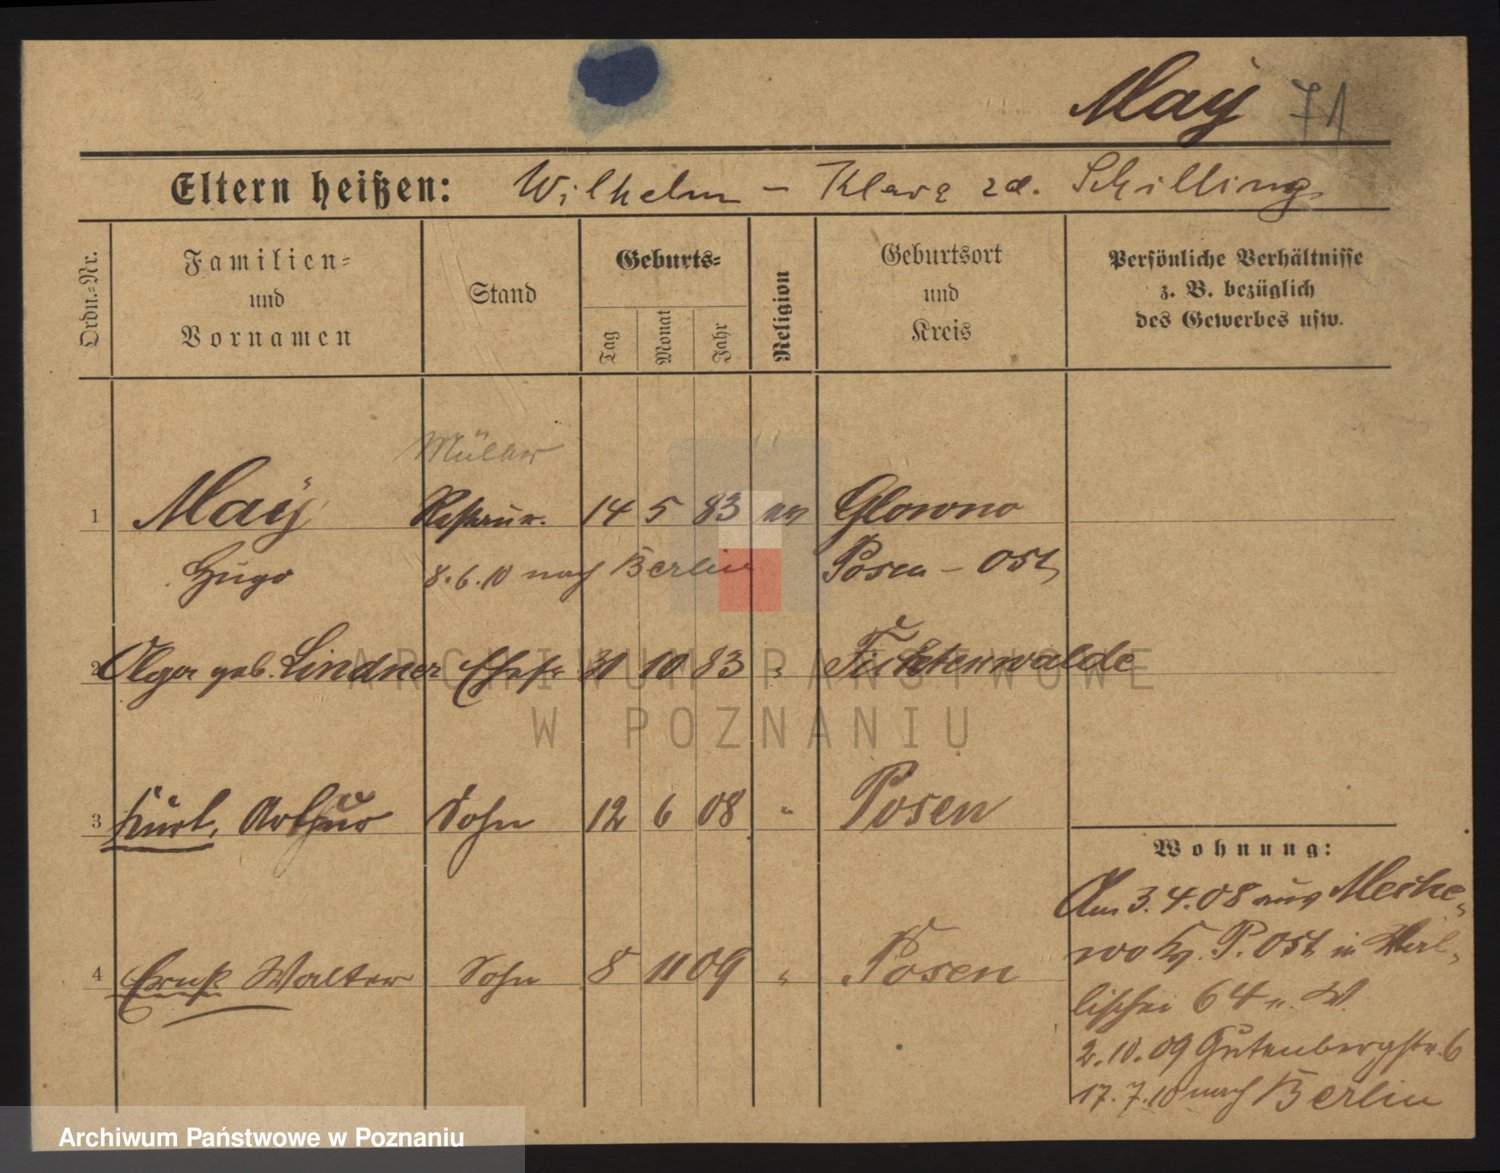 May 71
Eltern heißen: Wilhelm – Klara Schilling
Ordn.=Nr.
Familien=
und
Vornamen
Stand
Geburts=
Tag
Monat
Jahr
Religion
Geburtsort
und
Kreis
Persönliche Verhältnisse
z. B. bezüglich
des Gewerbes usw.
Müller
1 May Restaur. 14 5 83 ev Glowno
Hugo 8.6.10 nach Berlin Posen – Ost
2 Olga geb. Lindner Ehefr 31 10 83 " Fichtenwalde
3 Kurt, Arthur Sohn 12 6 08 " Posen
4 Ernst Walter Sohn 8 11 09 " Posen
Wohnung:
Am 3.4.08 aus
P. Ost in Wal-
lischei 64 u. W.
2.10.09 Gutenbergstr. 6
17.7.10 nach Berlin
ARCHIWUM PAŃSTWOWE
W POZNANIU
Archiwum Państwowe w Poznaniu